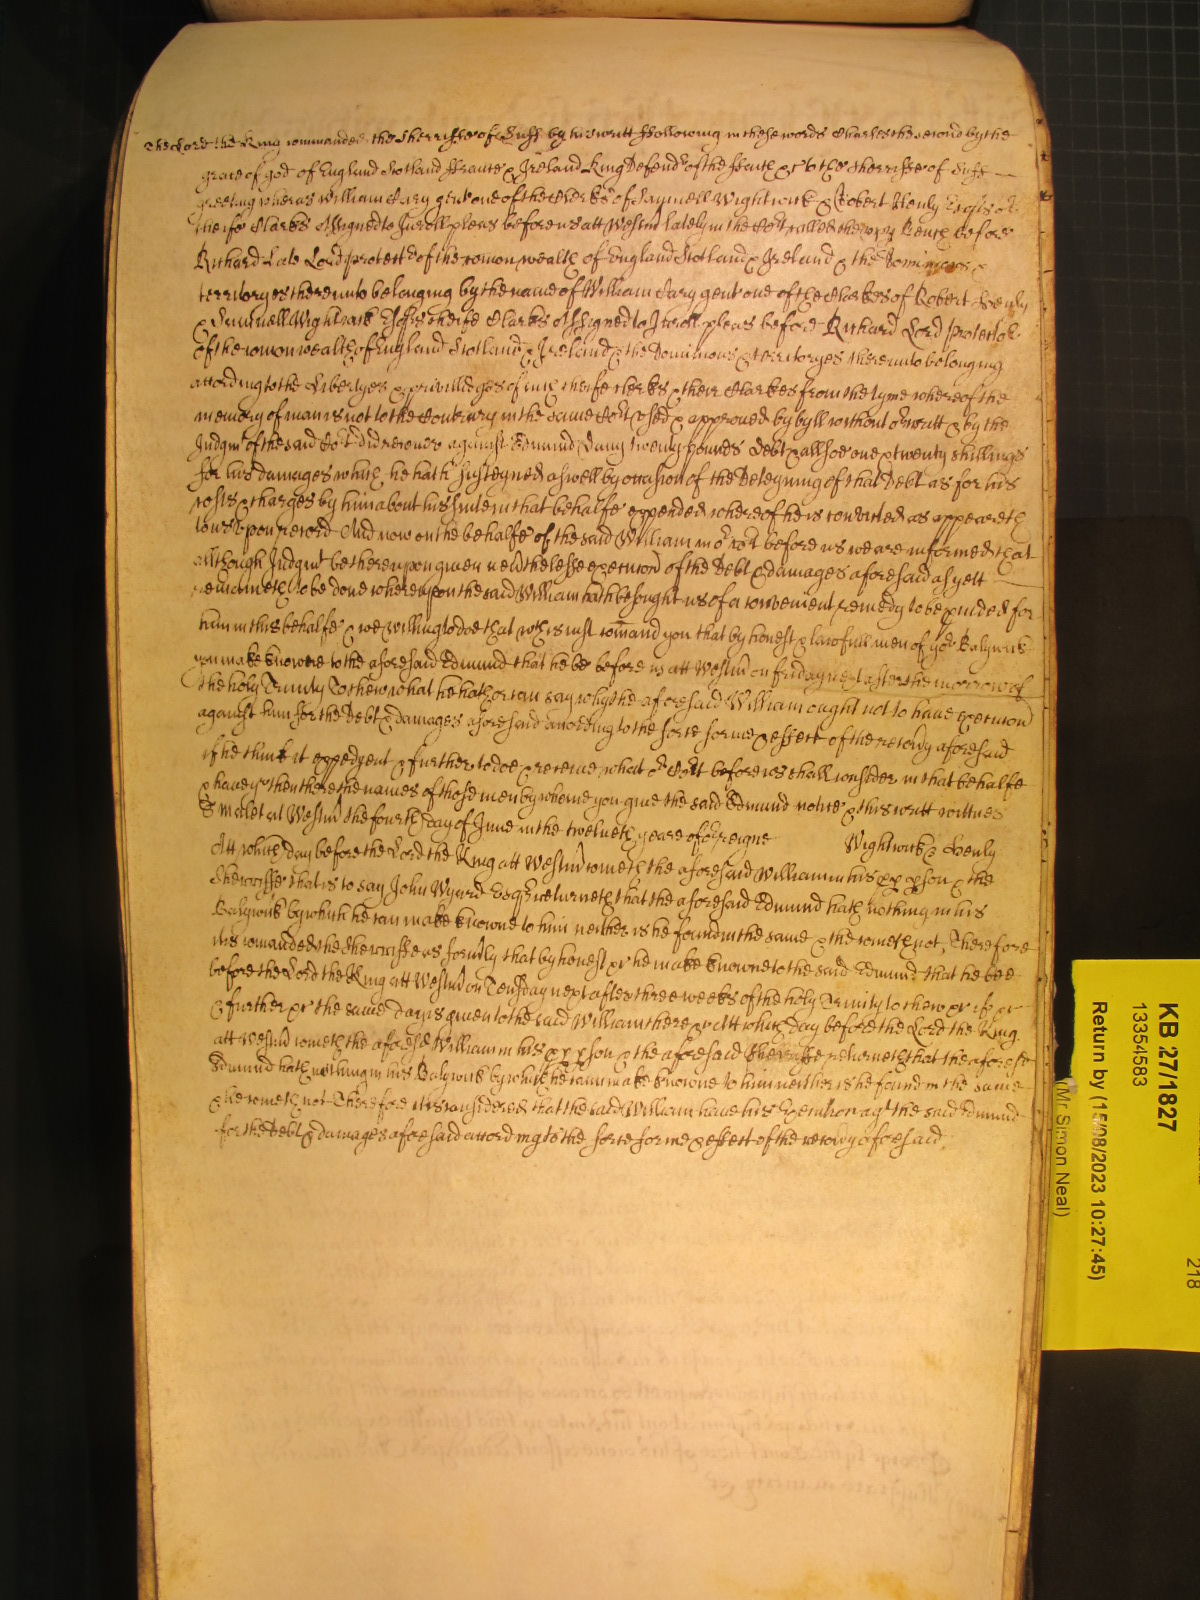 The Lord the King commanded the Sherriffe of Suff by his writt ffollowing in these words Charles the second by the
grace of god of England Scotland ffrance & Ireland King Defendr of the ffaith &c to the Sherriffe of Suff
greeting wheras William Cary gent one of the Clerks of Samuell Wightwick & Robert Henly Esqrs or
cheife Clarks Assigned to Inroll pleas before us att Westmr lately in the Cort called the upp Bench before
Richard Late Lord protectr of the comon wealth of England Scotland & Ireland & the Dominions &
territoryes thereunto belonging by the name of William Cary gent one of the Clarkes of Robert Henly
& Samuell Wightwick Esqrs cheife Clarks Assigned to Inroll pleas before Richard Lord protector
of the comon wealth of England Scotland & Ireland & the Dominions & territoryes thereunto belonging
according to the Libertyes & priviledges of such cheife clerks & their Clarkes from the tyme whereof the
memory of man is not to the Contrary in the same Cort used & approved by byll without or writt & by the
Judgmt of the said Cort did recover against Edmund twenty pounds Debt & allsoe one & twenty shillings
for his damages which he hath susteyned aswell by occasion of the Deteyning of that Debt as for his
costs & charges by him about his suite in that behalfe expended whereof he is convicted as appeareth
to us upon record And now on the behalfe of the said William in or cort before us we are informed that
allthough Judgmt be thereupon given neverthelesse execucon of the Debt & damages aforesaid as yett
remaineth to be done whereupon the said William hath besought us of a convenient remedy to be pvided for
him in this behalfe & we willing to doe that wch is just comand you that by honest & lawfull men of yor Balywick
you make knowne to the aforesaid Edmund that he be before us att Westmr on friday next after the morrow of
the holy Trinity To shew what he hath or can say why the aforesaid William ought not to have execucon
against him for the Debt & damages aforesaid according to the force forme & effect of the recovry aforesaid
if he think it expedyent & further to doe & receive what or Cort before us shall consider in that behalfe
& have yu then there the names of those men by whome you give the said Edmund notice & this writt wittnes
at Westmr the fourth day of June in the twelveth yeare of or reigne Wightwick & Henly
Att which day before the Lord the King att Westmr cometh the aforesaid William in his pp pson & the
Sherriffe that is to say John Wyard Esqr returneth that the aforesaid Edmund hath nothing in his
Balywick by which he can make knowne to him neither is he found in the same & the cometh not, Therefore
itis comanded the Sherriffe as formrly that by honest &c he make knowne to the said Edmund that he bee
before the Lord the King att Westmr on Tensday next after three weeks of the holy Trinity to shew &c if &c
& further &c the same day is given to the said William there &c Att which day before the Lord the King
att Westmr cometh the aforesd William in his pp pson & the aforesaid Sherriffe returneth that the aforesd
Edmund hath nothing in his Balywick by which he can make knowne to him neither is he found in the same
& he cometh not Therefore itis considered that the said William have his Execution agt the said Edmund
for the Debt & damages aforesaid according to the force forme & effect of the recovry aforesaid.
KB 27/1827
13354583
Return by (15/08/2023 10:27:45)
(Mr Simon Neal)
218